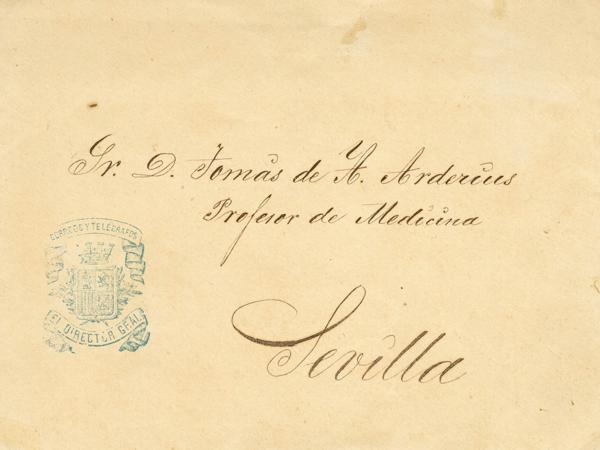 Sr. D. Tomás de A. Arderius
Profesor de Medicina
CORREOS Y TELEGRAFOS
EL DIRECTOR GRAL
Sevilla